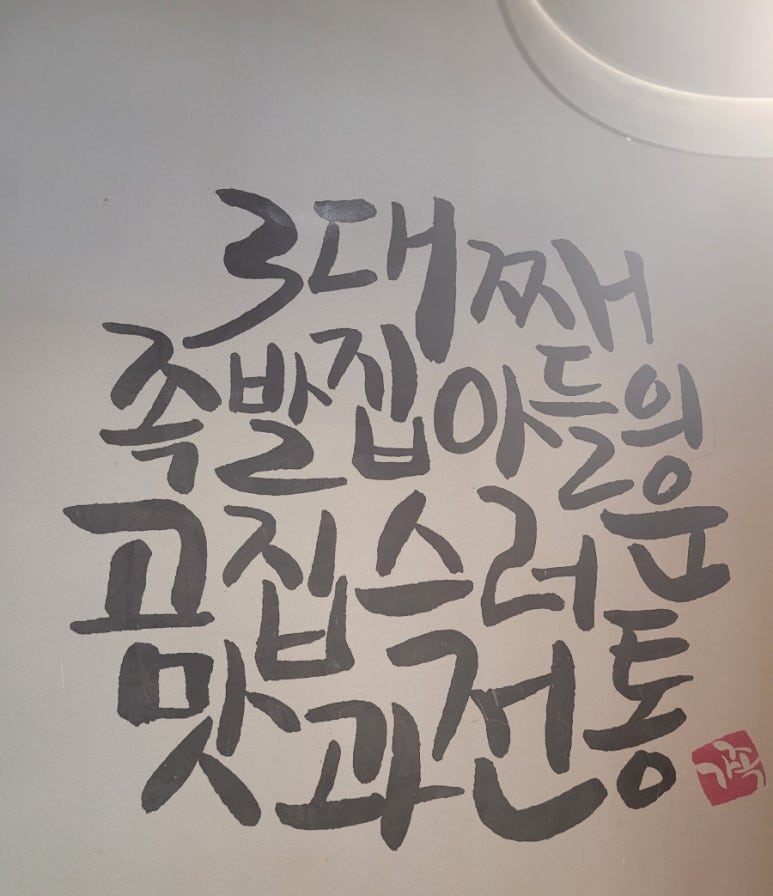 3대째
족발집 아들의
고집스러운
맛과 전통